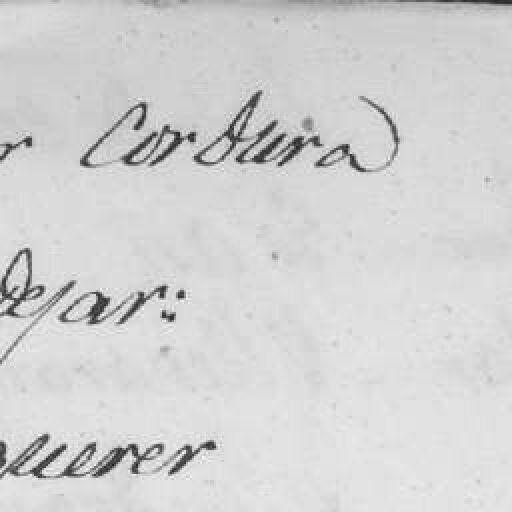 r Cordura
dejar:
querer